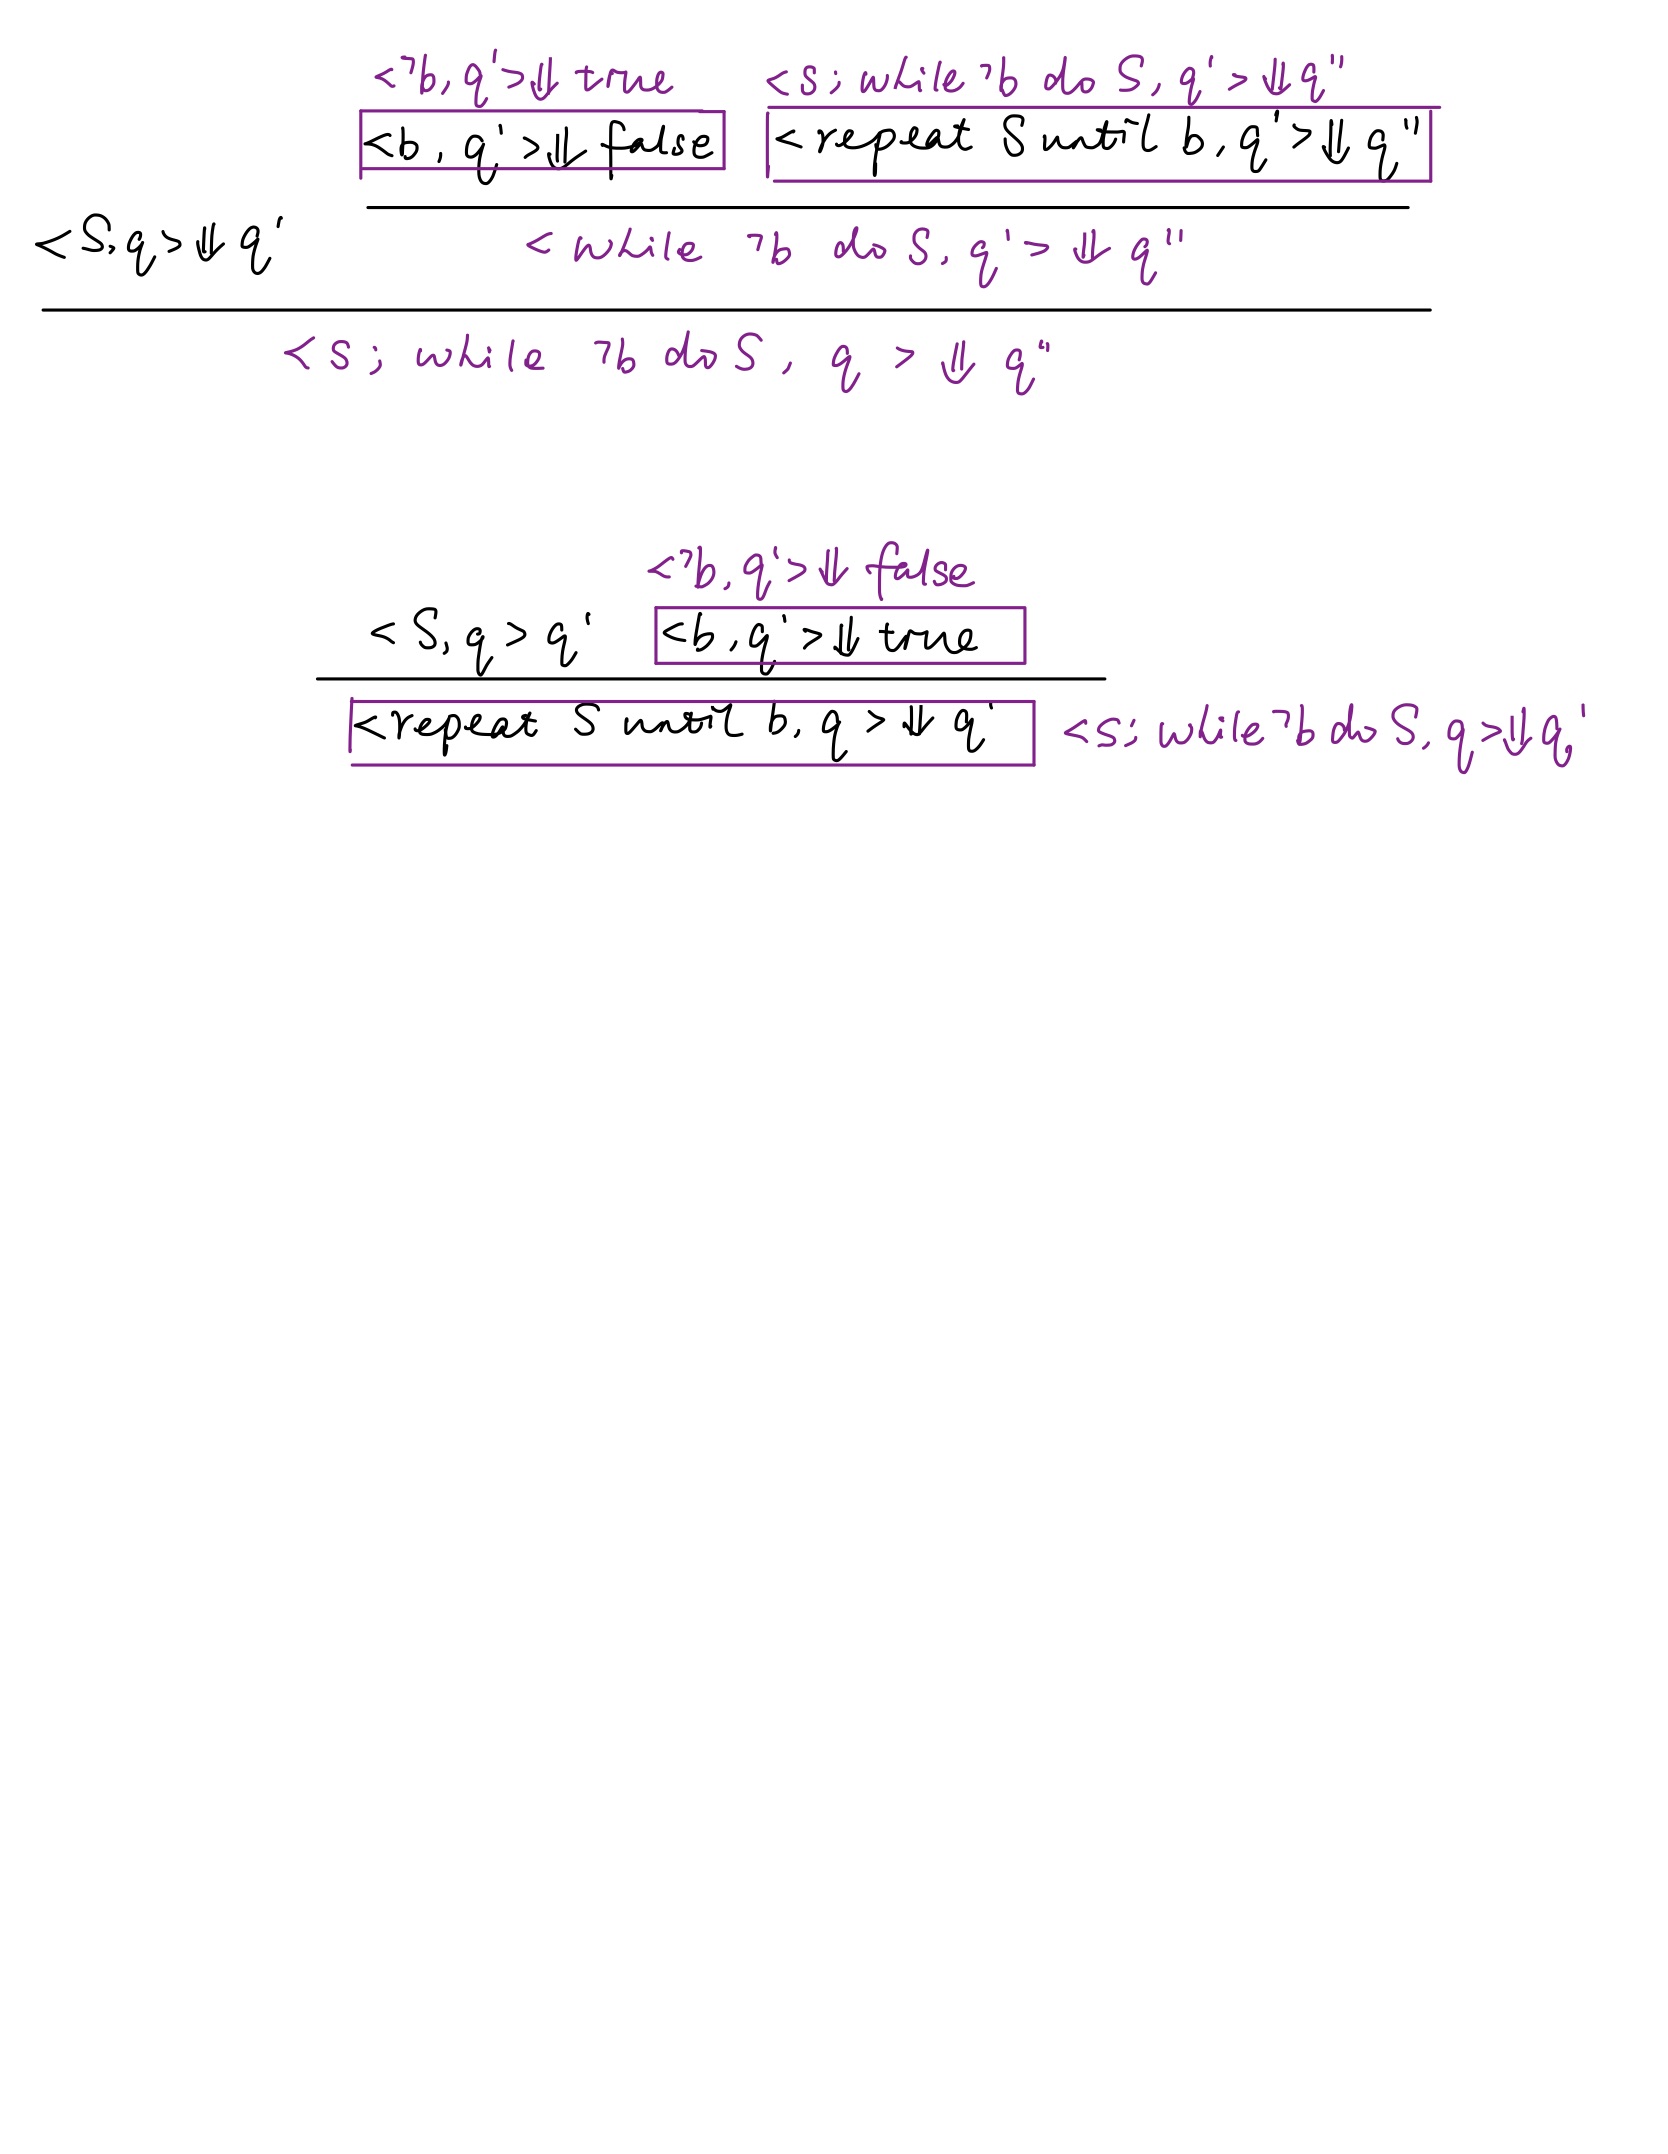 <¬b, q'>⇓ true <s; while ¬b do S, q'>⇓q"
<b, q'>⇓ false <repeat S until b, q'>⇓ q"
<S, q>⇓ q' < while ¬b do S, q'> ⇓ q"
<s; while ¬b do S, q > ⇓ q"
<¬b, q'>⇓ false
<S, q> q' <b, q'>⇓ true
<repeat S until b, q > ⇓ q' <s; while ¬b do S, q>⇓q'